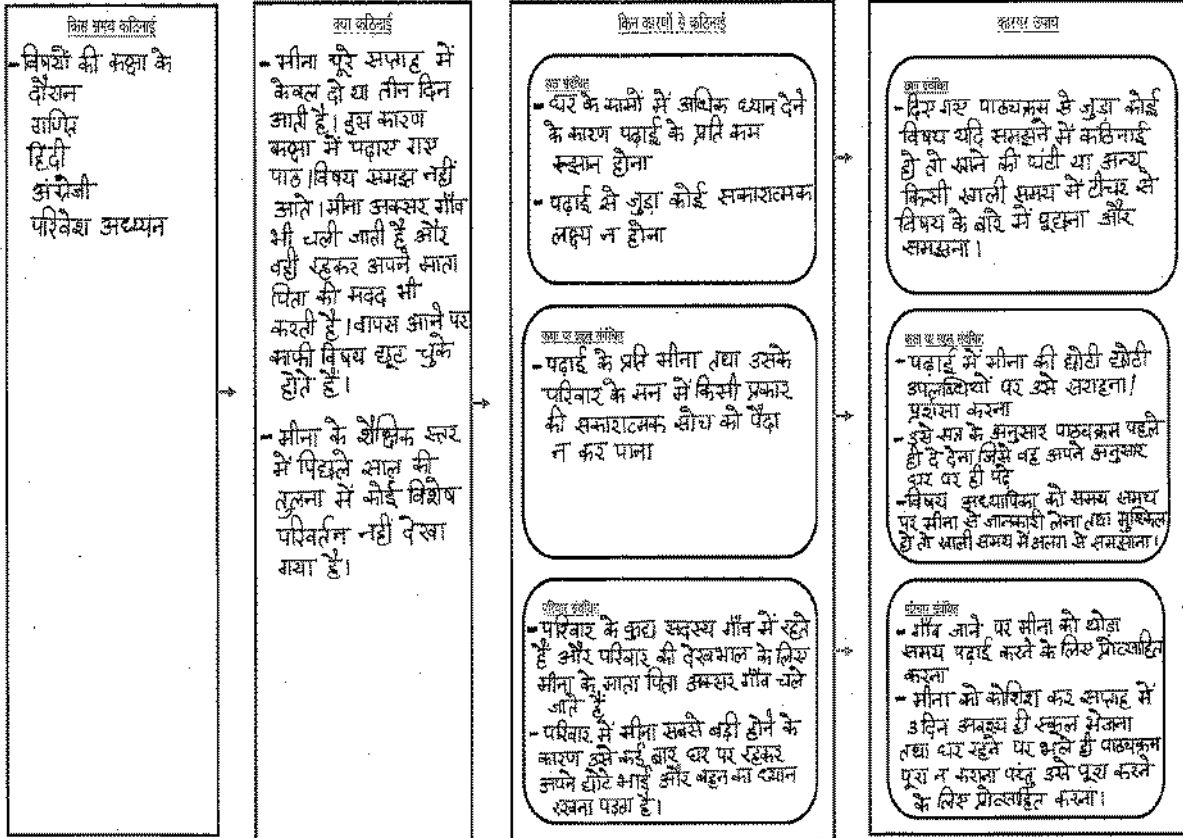 किस समय कठिनाई
- विषयों की कक्षा के
दौरान
गणित
हिंदी
अंग्रेजी
परिवेश अध्ययन
क्या कठिनाई
- मीना पूरे सप्ताह में
केवल दो या तीन दिन
आती है। इस कारण
कक्षा में पढ़ाए गए
पाठ/विषय समझ नहीं
आते। मीना अक्सर गाँव
भी चली जाती है और
वही रहकर अपने माता
पिता की मदद भी
करती है। वापस आने पर
काफी विषय छूट चुके
होते हैं।
- मीना के शैक्षिक स्तर
में पिछले साल की
तुलना में कोई विशेष
परिवर्तन नही देखा
गया है।
किन कारणों से कठिनाई
छात्र संबंधित
- घर के कामों में अधिक ध्यान देने
के कारण पढ़ाई के प्रति कम
रूझान होना
- पढ़ाई से जुड़ा कोई सकारात्मक
लक्ष्य न होना
कक्षा एवं स्कूल संबंधित
- पढ़ाई के प्रति मीना तथा उसके
परिवार के मन में किसी प्रकार
की सकारात्मक सोच को पैदा
न कर पाना
परिवार संबंधित
- परिवार के कुछ सदस्य गाँव में रहते
हैं और परिवार की देखभाल के लिए
मीना के माता पिता अक्सर गाँव चले
जाते हैं
- परिवार में मीना सबसे बड़ी होने के
कारण उसे कई बार घर पर रहकर
अपने छोटे भाई और बहन का ध्यान
रखना पड़ता है।
कारगर उपाय
छात्र संबंधित
- दिए गए पाठ्यक्रम से जुड़ा कोई
विषय यदि समझने में कठिनाई
हो तो खाने की घंटी या अन्य
किसी खाली समय में टीचर से
विषय के बारे में पूछना और
समझना।
कक्षा एवं स्कूल संबंधित
- पढ़ाई में मीना की छोटी छोटी
उपलब्धियों पर उसे सराहना/
प्रशंसा करना
- उसे सत्र के अनुसार पाठ्यक्रम पहले
ही दे देना जिसे वह अपने अनुसार
घर पर ही पढ़े
- विषय अध्यापिका को समय समय
पर मीना से जानकारी लेना तथा मुश्किल
हो तो खाली समय में अलग से समझाना।
परिवार संबंधित
- गाँव जाने पर मीना को थोड़ा
समय पढ़ाई करने के लिए प्रोत्साहित
करना
- मीना को कोशिश कर सप्ताह में
3 दिन अवश्य ही स्कूल भेजना
तथा घर रहने पर भले ही पाठ्यक्रम
पूरा न कराना परंतु उसे पूरा करने
के लिए प्रोत्साहित करना।